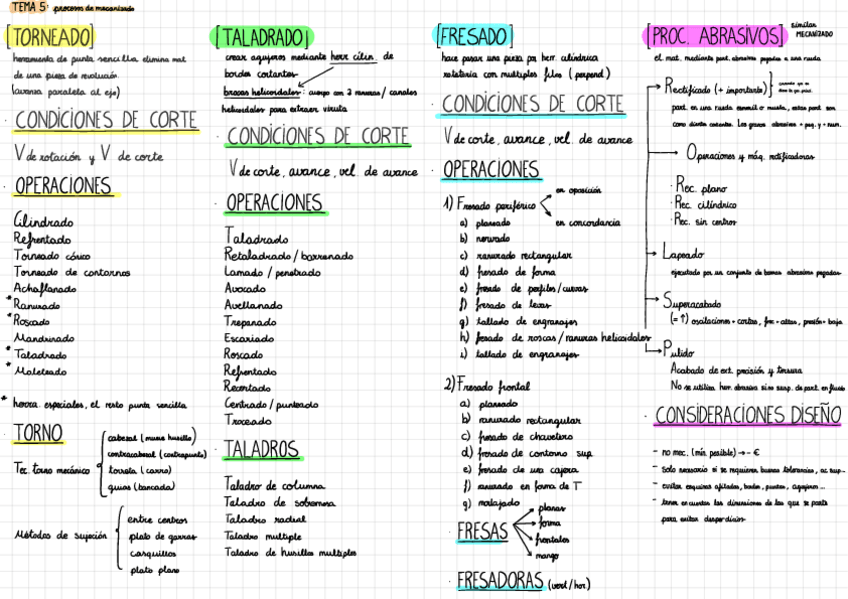 TEMA 5: procesos de mecanizado
[TORNEADO]
herramienta de punta sencilla elimina mat
de una pieza de revolución.
(avanza paralela al eje)
CONDICIONES DE CORTE
V de rotación y V de corte
OPERACIONES
Cilindrado
Refrentado
Torneado cónico
Torneado de contornos
Achaflanado
* Ranurado
* Roscado
Mandrinado
* Taladrado
* Moleteado
* herra. especiales, el resto punta sencilla
TORNO
Tec. torno mecánico
cabezal (mueve husillo)
contracabezal (contrapunto)
torreta (carro)
guías (bancada)
Métodos de sujeción
entre centros
plato de garras
casquillos
plato plano
[TALADRADO]
crear agujeros mediante herr cilín. de
bordes cortantes.
brocas helicoidales: cuerpo con 2 ranuras/canales
helicoidales para extraer viruta
CONDICIONES DE CORTE
V de corte, avance, vel. de avance
OPERACIONES
Taladrado
Retaladrado/barrenado
Lamado/penetrado
Avocado
Avellanado
Trepanado
Escariado
Roscado
Refrentado
Recentado
Centrado/punteado
Troceado
TALADROS
Taladro de columna
Taladro de sobremesa
Taladro radial
Taladro multiple
Taladro de husillos multiples
[FRESADO]
hace pasar una pieza por herr. cilíndrica
rotatoria con multiples filos (perpend)
CONDICIONES DE CORTE
V de corte, avance, vel. de avance
OPERACIONES
1) Fresado periférico
en oposición
en concordancia
a) planeado
b) nervado
c) ranurado rectangular
d) fresado de forma
e) fresado de perfiles/curvas
f) fresado de levas
g) tallado de engranajes
h) fresado de roscas/ranuras helicoidales
i) tallado de engranajes
2) Fresado frontal
a) planeado
b) ranurado rectangular
c) fresado de chavetero
d) fresado de contorno sup
e) fresado de una cajera
f) ranurado en forma de T
g) mortajado
FRESAS
planas
forma
frontales
mango
FRESADORAS (vert/hor)
[PROC. ABRASIVOS]
similar
MECANIZADO
el mat. mediante part. abrasivas pegadas a una rueda
Rectificado (+ importante)
part. en una rueda esmeril o muela, estas part. son
como dientes cortantes. Los granos abrasivos + peq. y + num.
Operaciones y máq. rectificadoras
· Rec. plano
· Rec. cilíndrico
· Rec. sin centros
Lapeado
ejecutado por un conjunto de barras abrasivas pegadas.
Superacabado
(= ↑) oscilaciones + cortas, frec + altas, presión + baja
Pulido
Acabado de ext. precisión y tersura
No se utiliza herr. abrasiva sino susp. de part. en fluido
CONSIDERACIONES DISEÑO
- no mec. (mín. posible) → - €
- solo necesario si se requieren buenas tolerancias, ac sup..
- evitar esquinas afiladas, bordes, puntas, agujeros...
- tener en cuenta las dimensiones de las que se parte
para evitar desperdicios